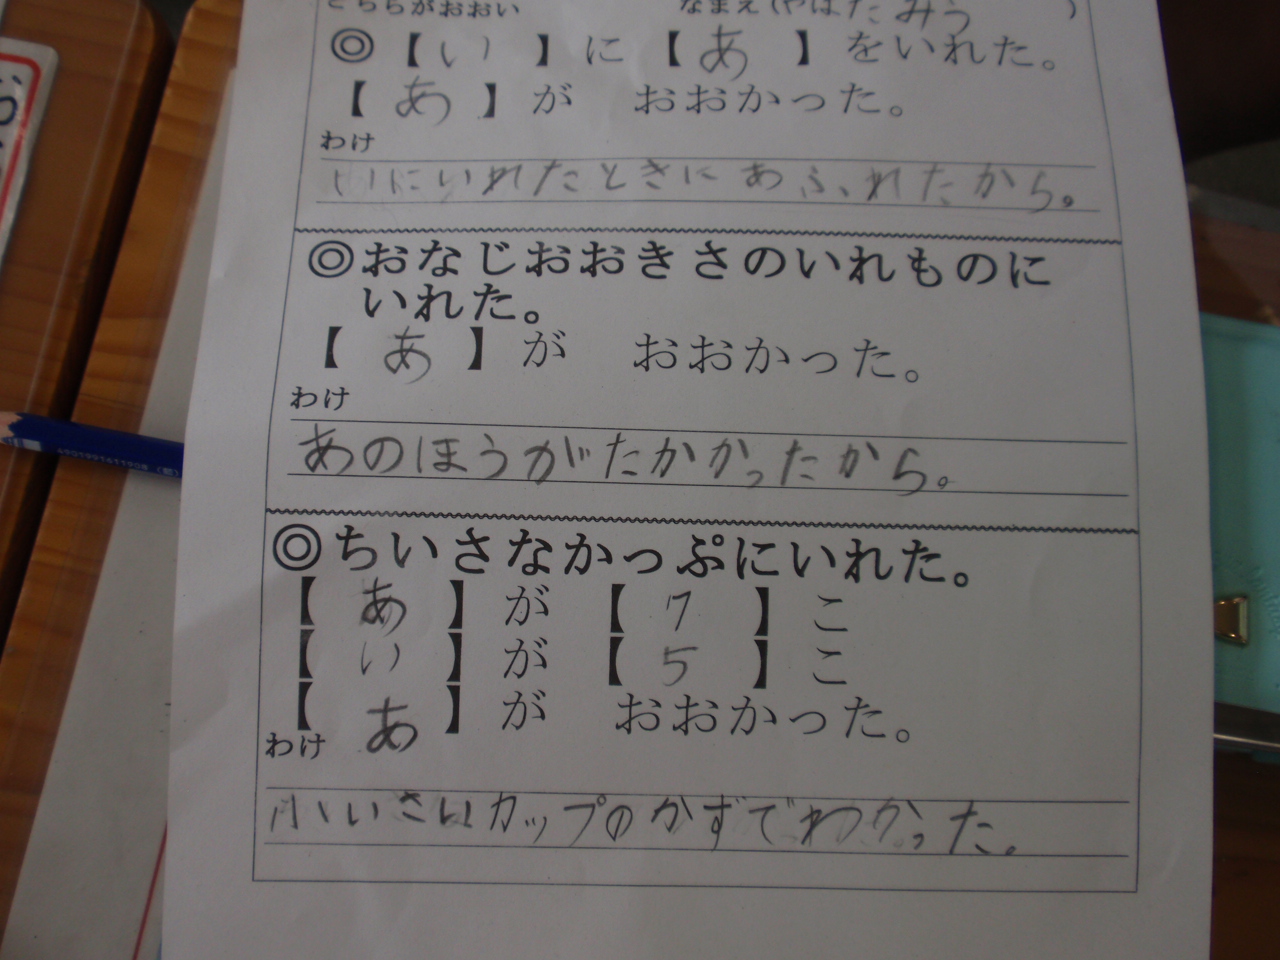 どちらがおおい なまえ(やはた みう )
◎【い】に【あ】をいれた。
【あ】が おおかった。
わけ
いにいれたときにあふれたから。
◎おなじおおきさのいれものに
いれた。
【あ】が おおかった。
わけ
あのほうがたかかったから。
◎ちいさなかっぷにいれた。
【あ】が【7】こ
【い】が【5】こ
【あ】が おおかった。
わけ
小いさいカップのかずでわかった。